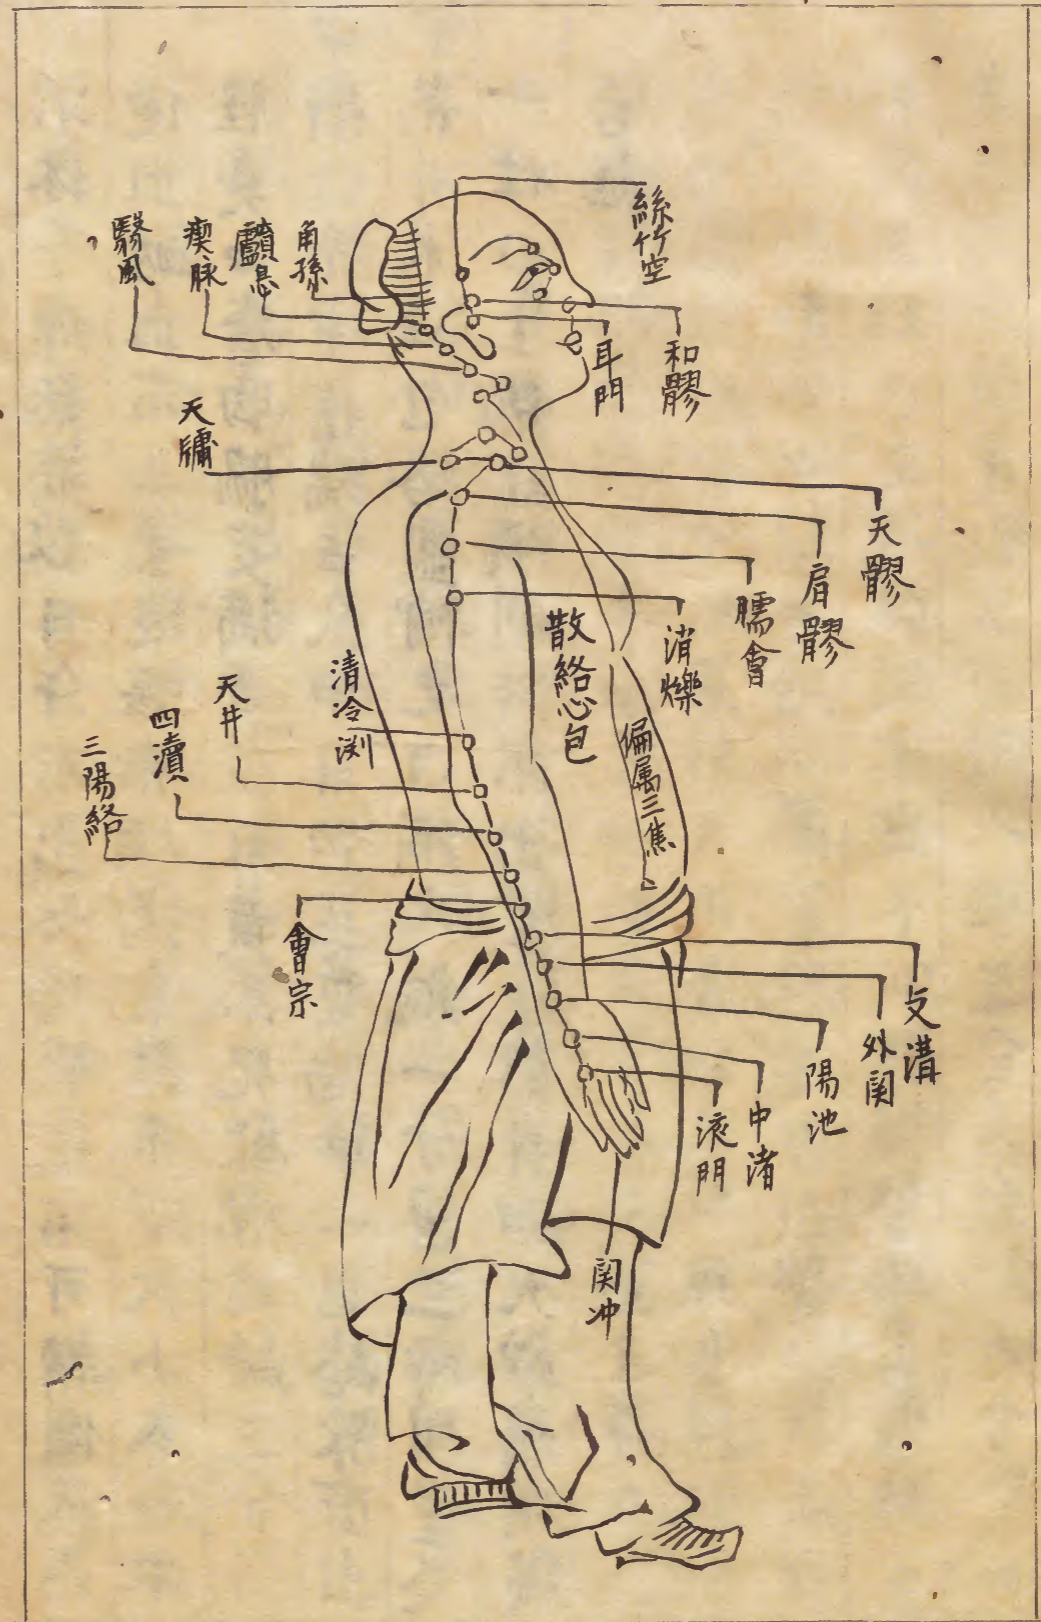 絲竹空
和髎
耳門
角孫
顱息
瘈脉
翳風
天牖
天髎
肩髎
臑會
消爍
散絡心包
偏属三焦
清冷渕
天井
四瀆
三陽絡
會宗
支溝
外関
陽池
中渚
液門
関冲